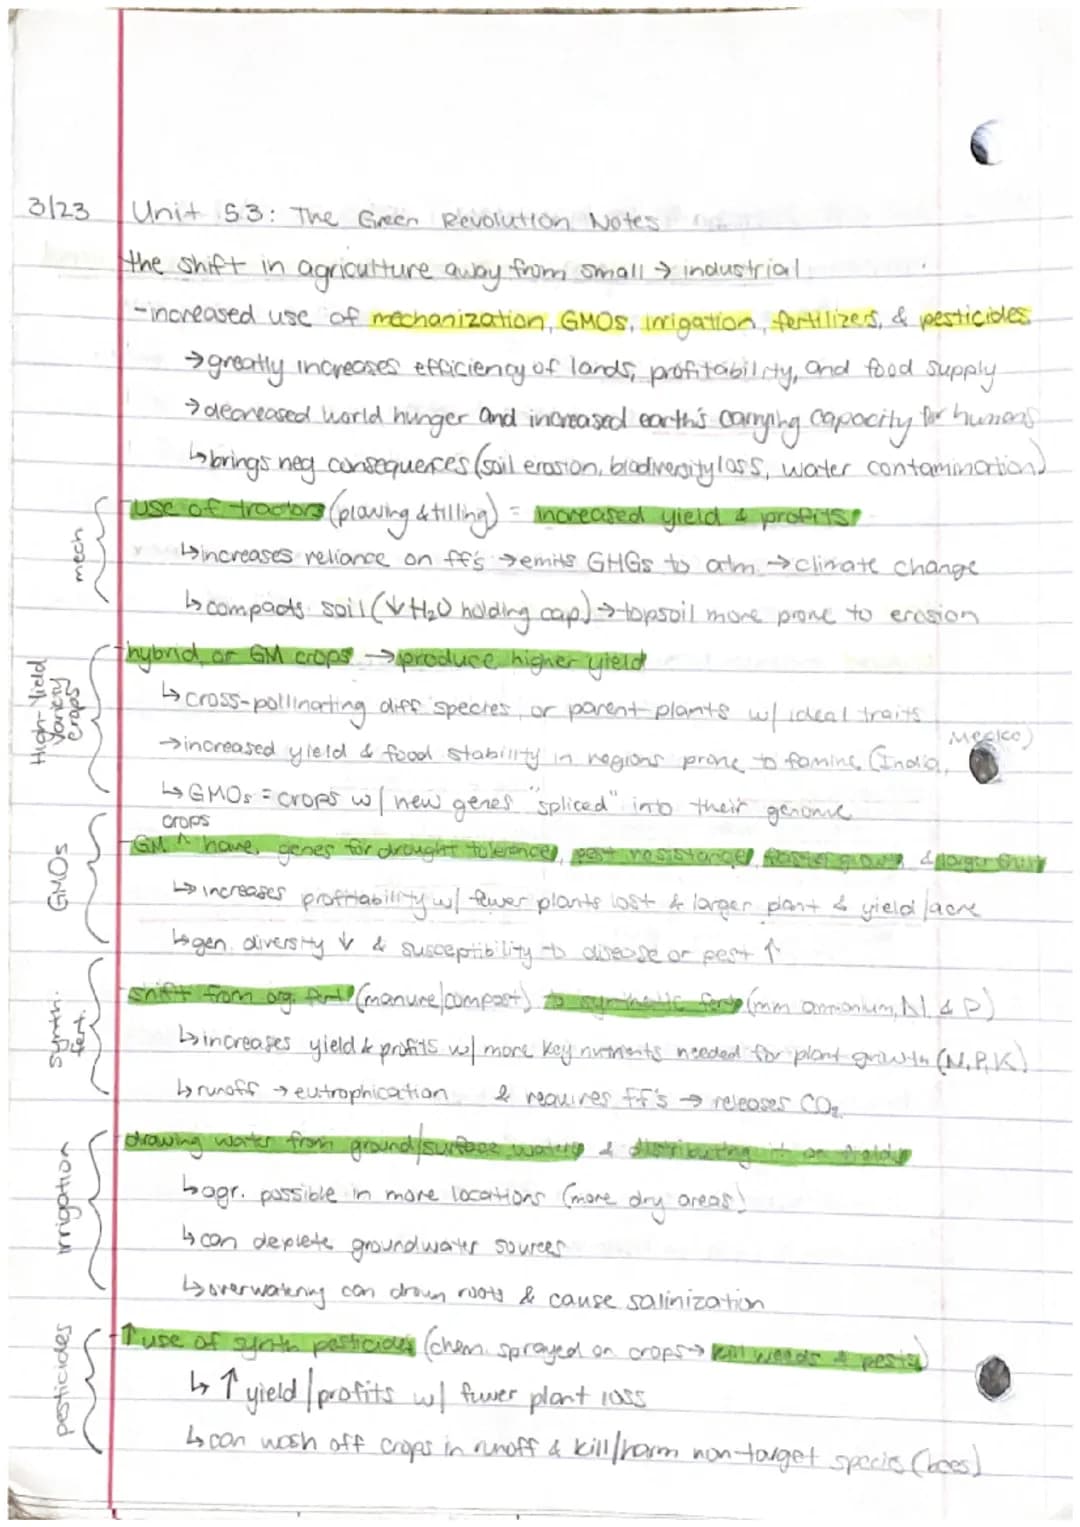 3/23 Unit 5.3: The Green Revolution Notes
the shift in agriculture away from small → industrial
-increased use of mechanization, GMOs, irrigation, fertilizers, & pesticides
→greatly increases efficiency of lands, profitability, and food supply
→decreased world hunger and increased earth's carrying capacity for humans
↳brings neg consequences (soil erosion, biodiversity loss, water contamination)
mech
-use of tractors (plowing & tilling) = increased yield & profits
↳increases reliance on ff's →emits GHGs to atm. →climate change
↳compacts soil (↓ H₂O holding cap.) →topsoil more prone to erosion
High-Yield
Variety
crops
-hybrid, or GM crops →produce higher yield
↳cross-pollinating diff species, or parent plants w/ ideal traits
→increased yield & food stability in regions prone to famine (India, Mexico)
↳GMOs = crops w/ new genes "spliced" into their genome
GMOs
-GM ^ crops have genes for drought tolerance, pest resistance, faster growth, & larger fruit
↳increases profitability w/ fewer plants lost & larger plant & yield/acre
↳gen. diversity ↓ & susceptibility to disease or pest ↑
Synth.
fert.
-shift from org. fert (manure/compost) to synthetic fert (mm ammonium, N, & P)
↳increases yield & profits w/ more key nutrients needed for plant growth (N, P, K)
↳runoff → eutrophication & requires ff's → releases CO₂
irrigation
-drawing water from ground/surface waters & distributing it on fields
↳agr. possible in more locations (more dry areas)
↳can deplete groundwater sources
↳overwatering can drown roots & cause salinization
pesticides
-↑use of synth pesticides (chem. sprayed on crops→ kill weeds & pests)
↳↑yield/profits w/ fewer plant loss
↳can wash off crops in runoff & kill/harm non-target species (bees)